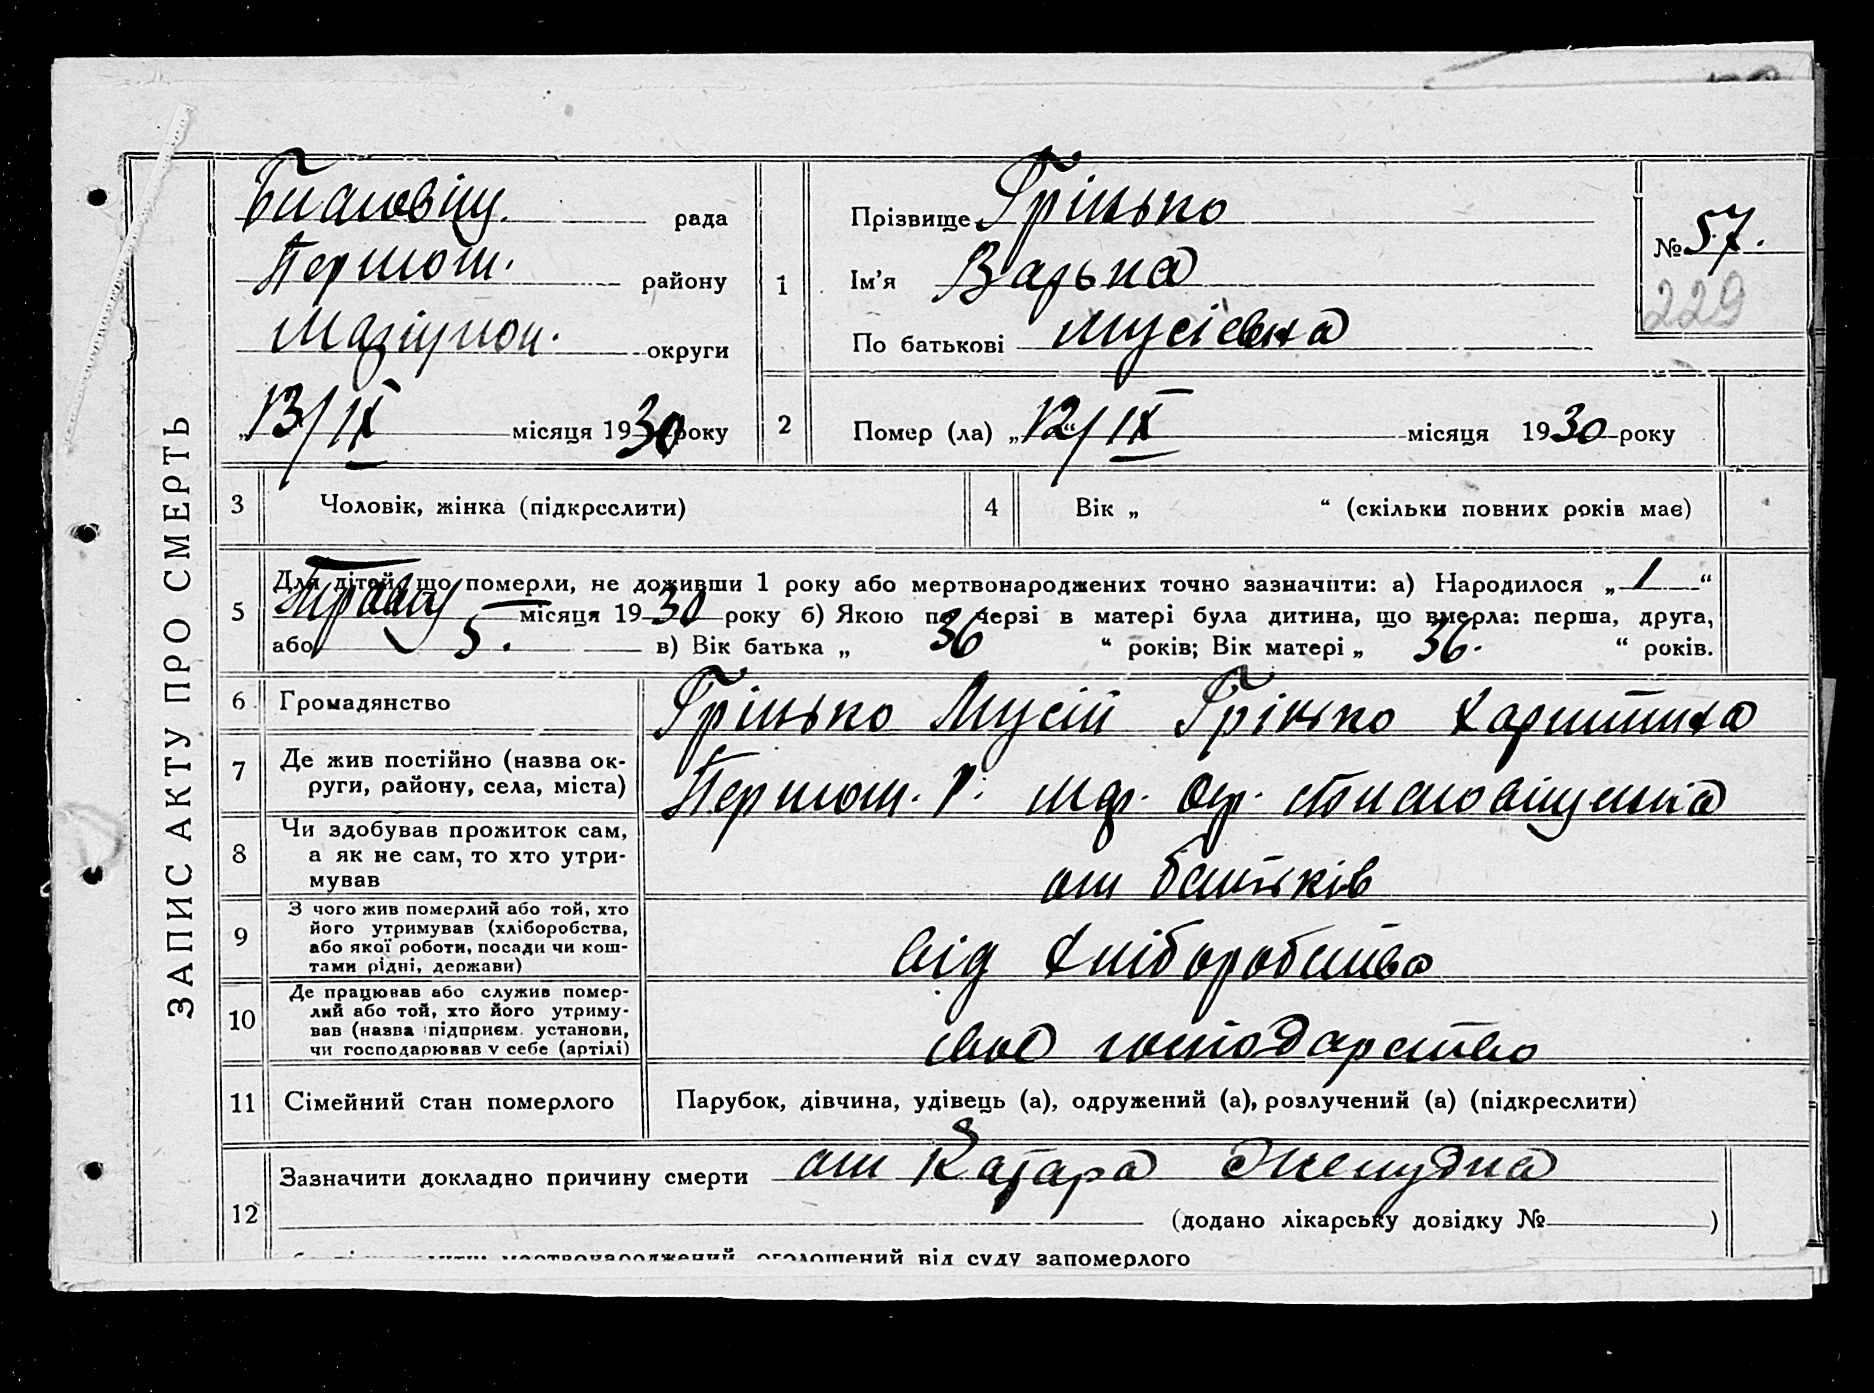 ЗАПИС АКТУ ПРО СМЕРТЬ
рада
Першот. району
Маріупол. округи
"13/IX місяця 1930 року
1
Прізвище Гріцько
Ім'я Варька
По батькові Мусієвна
№ 57.
229
2 Помер (ла) „12/IX місяця 1930 року
3 Чоловік, жінка (підкреслити)
4 Вік „ “ (скільки повних років має)
5 Для дітей, що померли, не доживши 1 року або мертвонароджених точно зазначити: а) Народилося „1“
Травня місяця 1930 року б) Якою по черзі в матері була дитина, що вмерла: перша, друга,
або 5. в) Вік батька „ 36 “ років; Вік матері „ 36. “ років.
6 Громадянство Гріцько Мусій Гріцько Харитина
7 Де жив постійно (назва ок-
руги, району, села, міста) Першот. Р. Мар. Окр.
8 Чи здобував прожиток сам,
а як не сам, то хто утри-
мував от батьків
9 З чого жив померлий або той, хто
його утримував (хліборобства,
або якої роботи, посади чи кош-
тами рідні, держави) від хліборобства
10 Де працював або служив помер-
лий або той, хто його утриму-
вав (назва підприєм. установи,
чи господарював у себе (артілі) своє господарство
11 Сімейний стан померлого Парубок, дівчина, удівець (а), одружений (а), розлучений (а) (підкреслити)
12 Зазначити докладно причину смерти от Катара Желудка
(додано лікарську довідку № )
мертвонароджений, оголошений від суду запомерлого